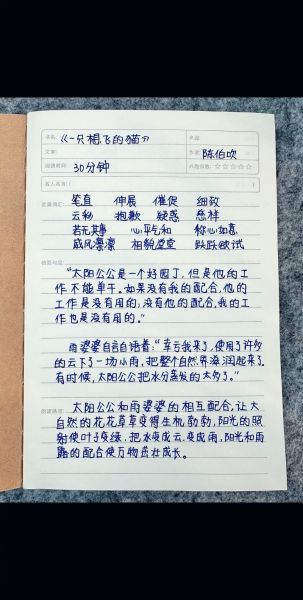 书名: 《一只想飞的猫》
文章: 作者: 陈伯吹
阅读时间: 30分钟
名人名言:
好词积累: 笔直 伸展 催促 细致
云彩 抱歉 疑惑 慈祥
若无其事 心平气和 称心如意
威风凛凛 相貌堂堂 跃跃欲试
“太阳公公是一个好园丁,但是他的工
作不能单干。如果没有我的配合,他的
工作是没有用的,没有他的配合,我的工
作也是没有用的。”
雨婆婆自言自语着:“幸亏我来了,使用了许多
的云下了一场小雨,把整个自然界滋润起来了。
有时候,太阳公公把水分蒸发的太多了。”
阅读感悟: 太阳公公和雨婆婆的相互配合,让大
自然的花花草草变得生机勃勃,阳光的照
射使叶子变绿,把水变成云,变成雨,阳光和雨
露的配合使万物茁壮成长。